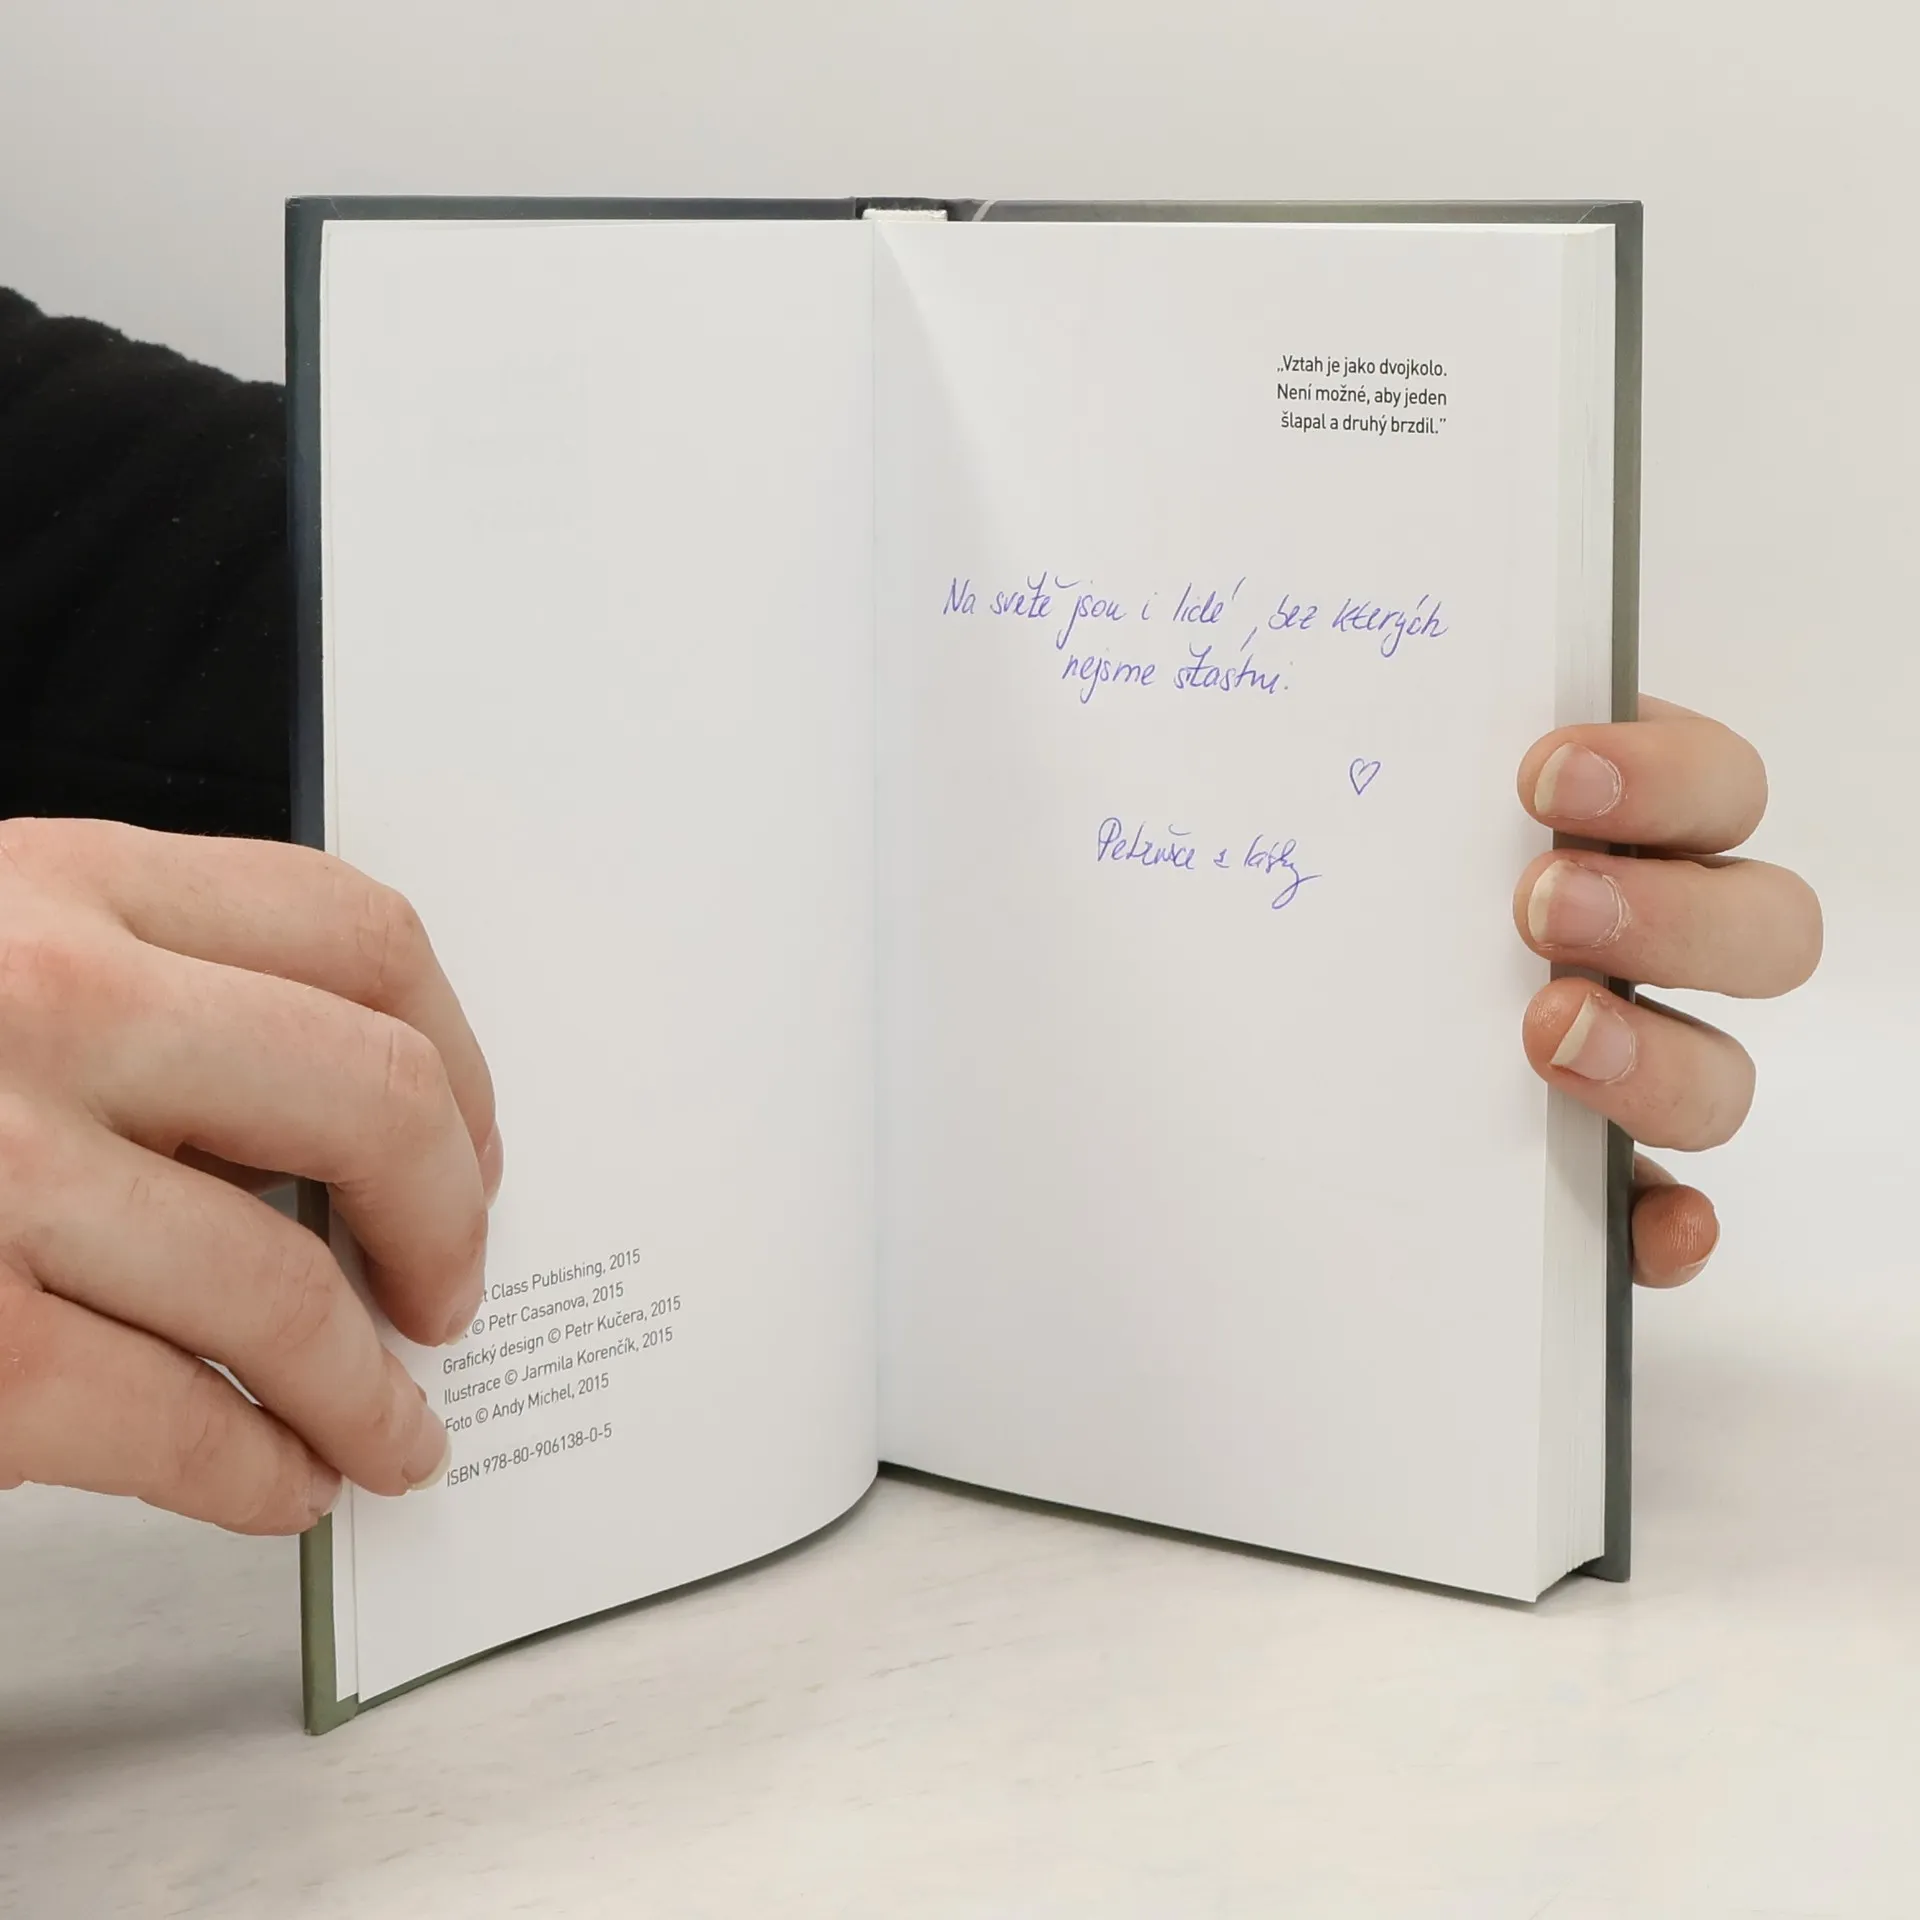 t Class Publishing, 2015
© Petr Casanova, 2015
Grafický design © Petr Kučera, 2015
Ilustrace © Jarmila Korenčík, 2015
Foto © Andy Michel, 2015
ISBN 978-80-906138-0-5
„Vztah je jako dvojkolo.
Není možné, aby jeden
šlapal a druhý brzdil.”
Na světě jsou i lidé, bez kterých
nejsme šťastni.
Petrušce z lásky